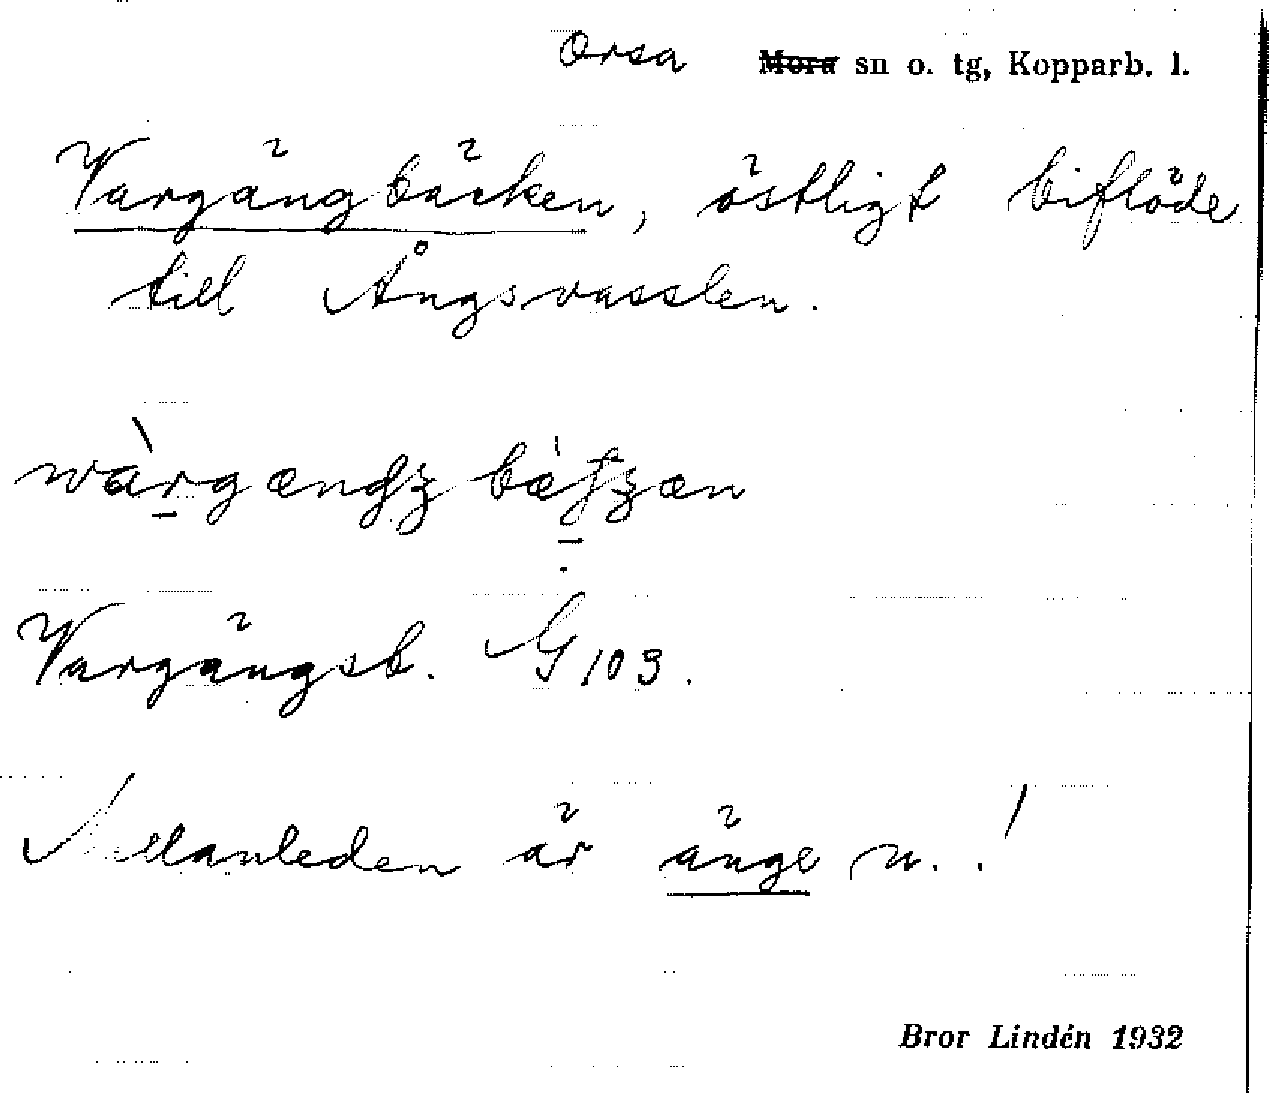 Orsa ~~Mora~~ sn o. tg, Kopparb. l.
Vargängbäcken, östligt biflöde
till Ångsvasslen.
Vargängsb. G 103.
Mellanleden är änge n. !
Bror Lindén 1932